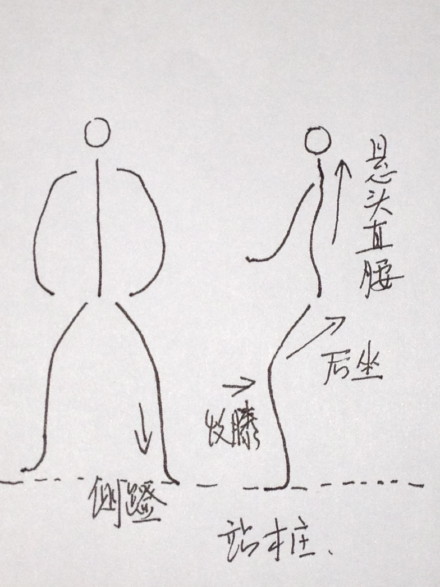 悬头直腰
后坐
收膝
侧蹬
站桩、